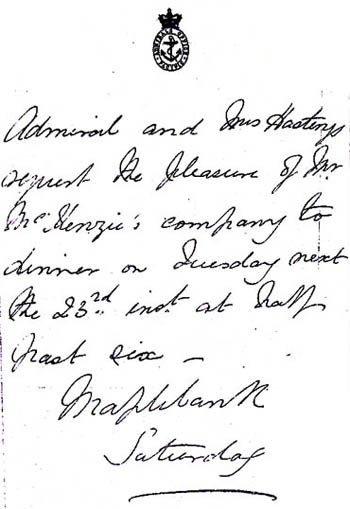 Admiral and Mrs Hastings
request the pleasure of Mr.
McKenzie's company to
dinner on Tuesday next
the 23rd. inst. at half
past six —
Maplebank
Saturday